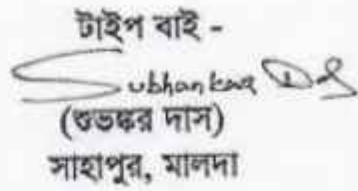 টাইপ বাই -
Subhankar Das
(শুভঙ্কর দাস)
সাহাপুর, মালদা